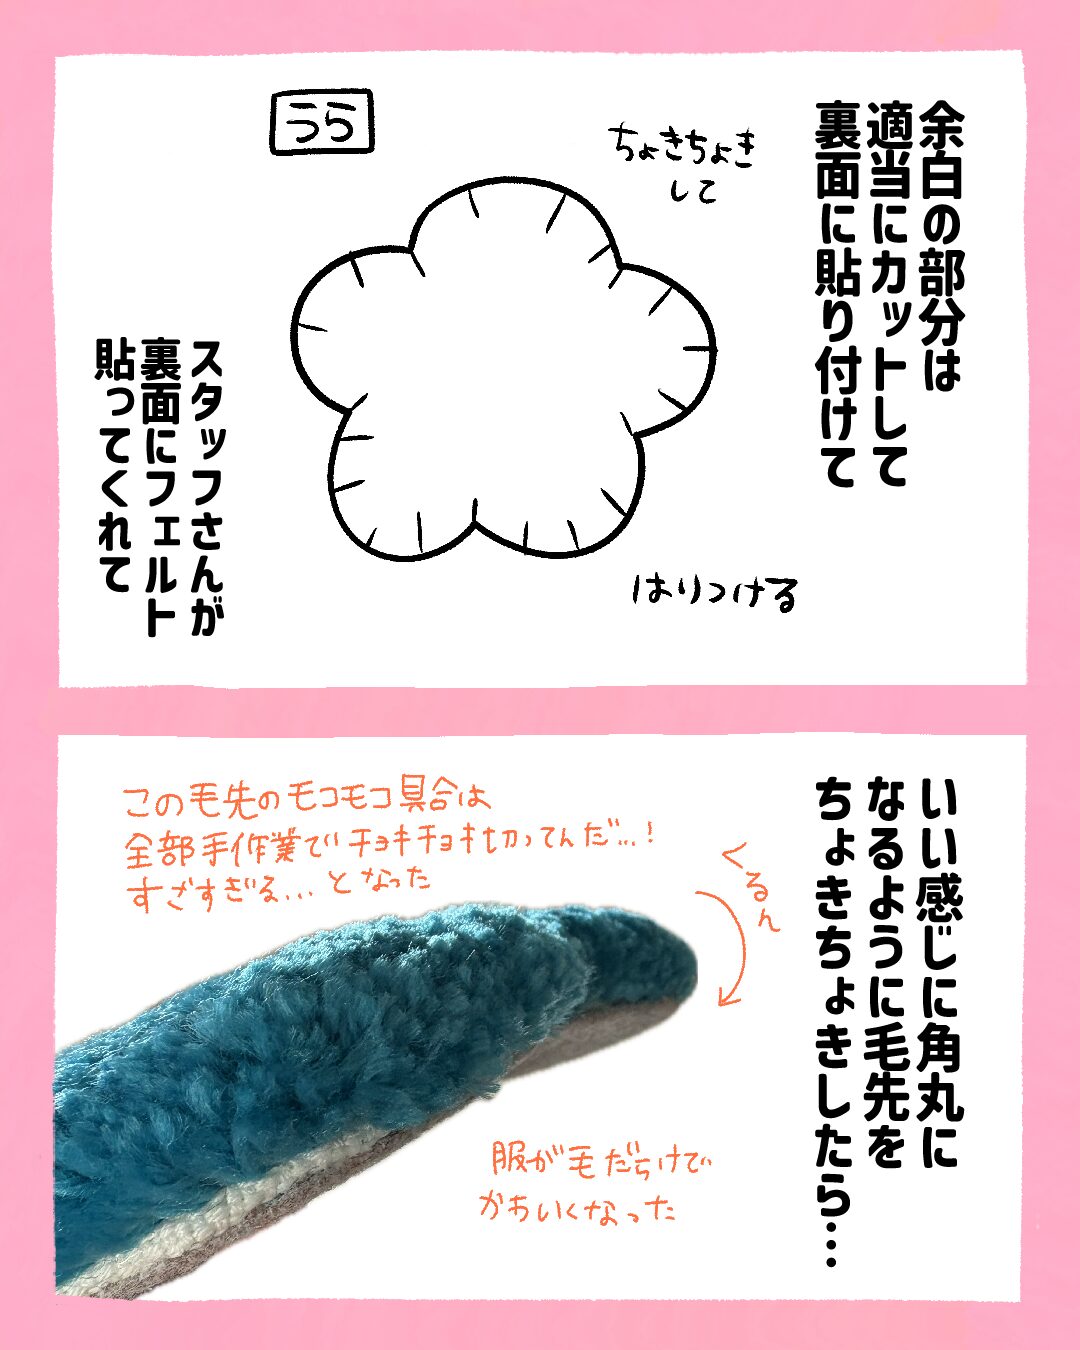 余白の部分は
適当にカットして
裏面に貼り付けて
うら
ちょきちょき
して
はりつける
スタッフさんが
裏面にフェルト
貼ってくれて
いい感じに角丸に
なるように毛先を
ちょきちょきしたら…
この毛先のモコモコ具合は
全部手作業でチョキチョキ切ってんだ…!
すごすぎる…となった
くるん
服が毛だらけで
かわいくなった